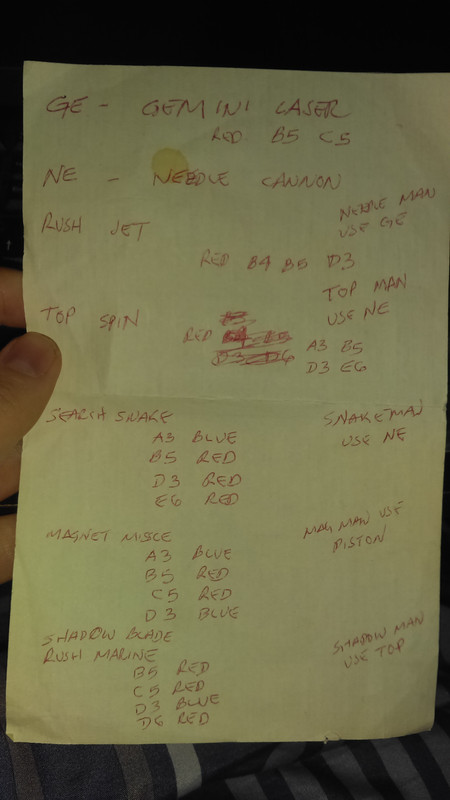 GE - GEMINI LASER
RED B5 C5
NE - NEEDLE CANNON
NEEDLE MAN
USE GE
RUSH JET
RED B4 B5 D3
TOP MAN
USE NE
TOP SPIN
RED
A3 B5
D3 E6
SEARCH SNAKE
SNAKEMAN
USE NE
A3 BLUE
B5 RED
D3 RED
E6 RED
MAGNET MISSLE
MAG MAN USE
PISTON
A3 BLUE
B5 RED
C5 RED
D3 BLUE
SHADOW BLADE
RUSH MARINE
SHADOW MAN
USE TOP
B5 RED
C5 RED
D3 BLUE
D6 RED